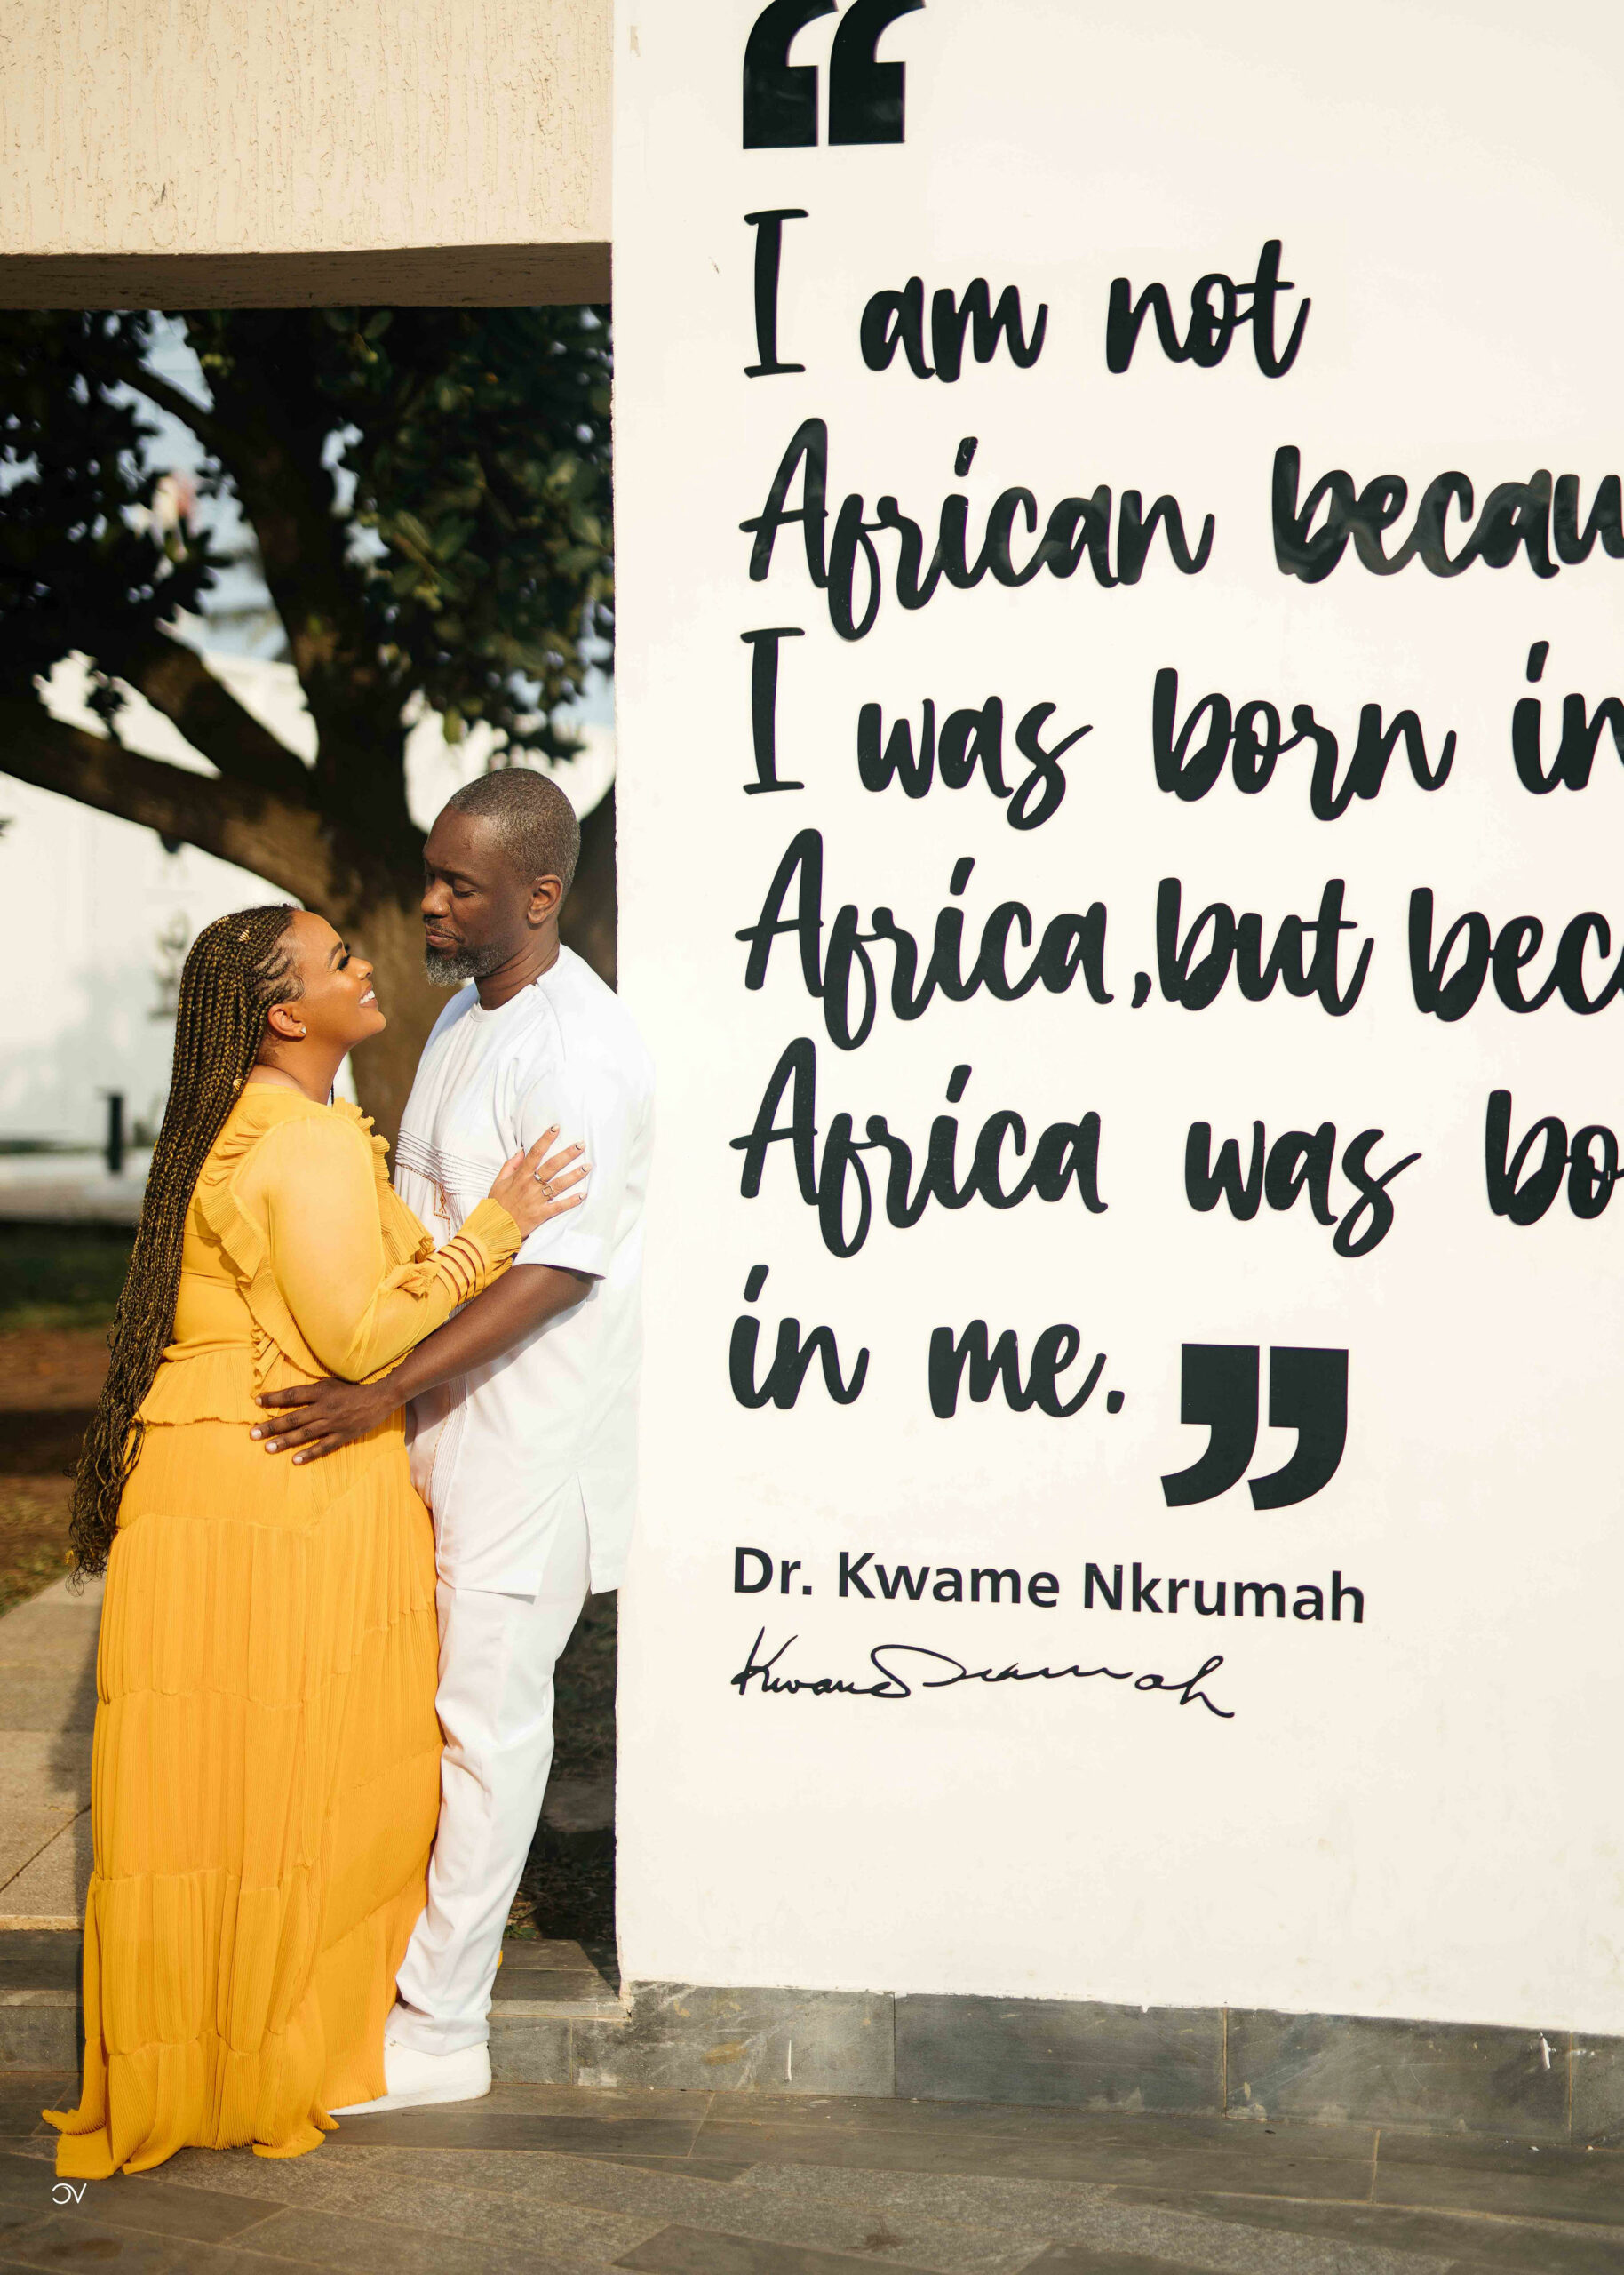 “
I am not
African becau
I was born in
Africa, but bec
Africa was bo
in me. ”
Dr. Kwame Nkrumah